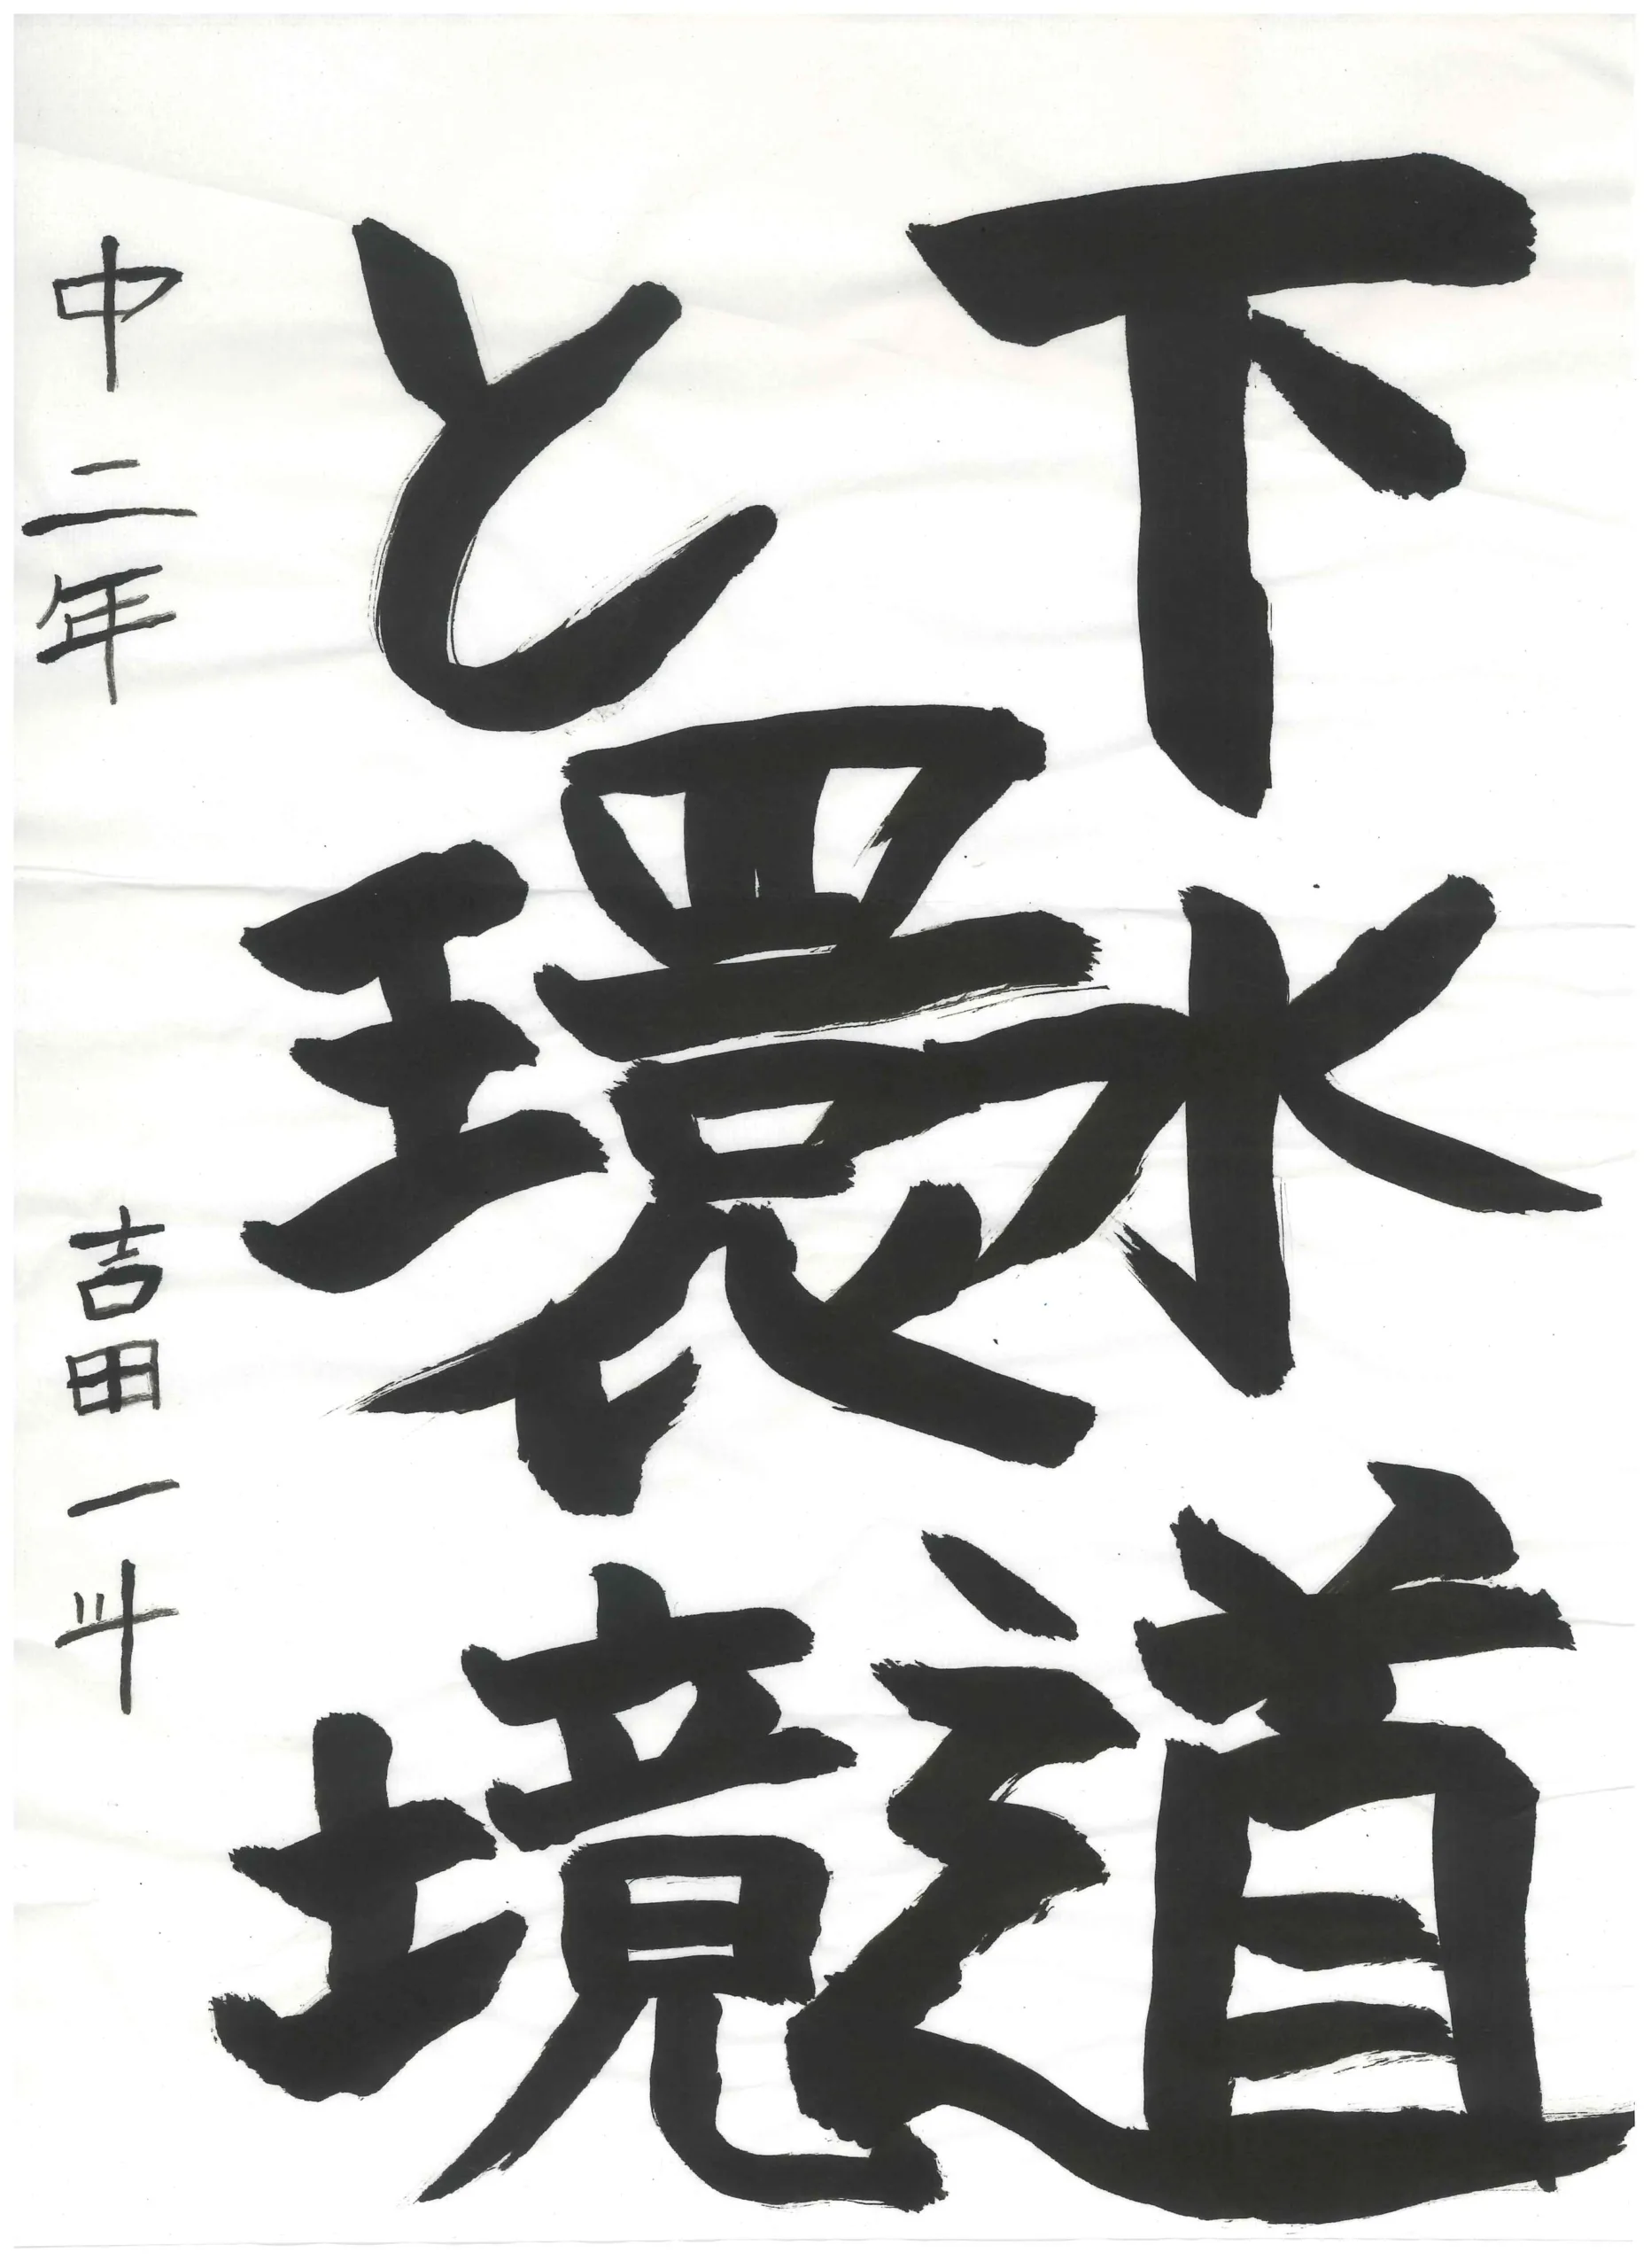 下水道
と環境
中二年 吉田一斗